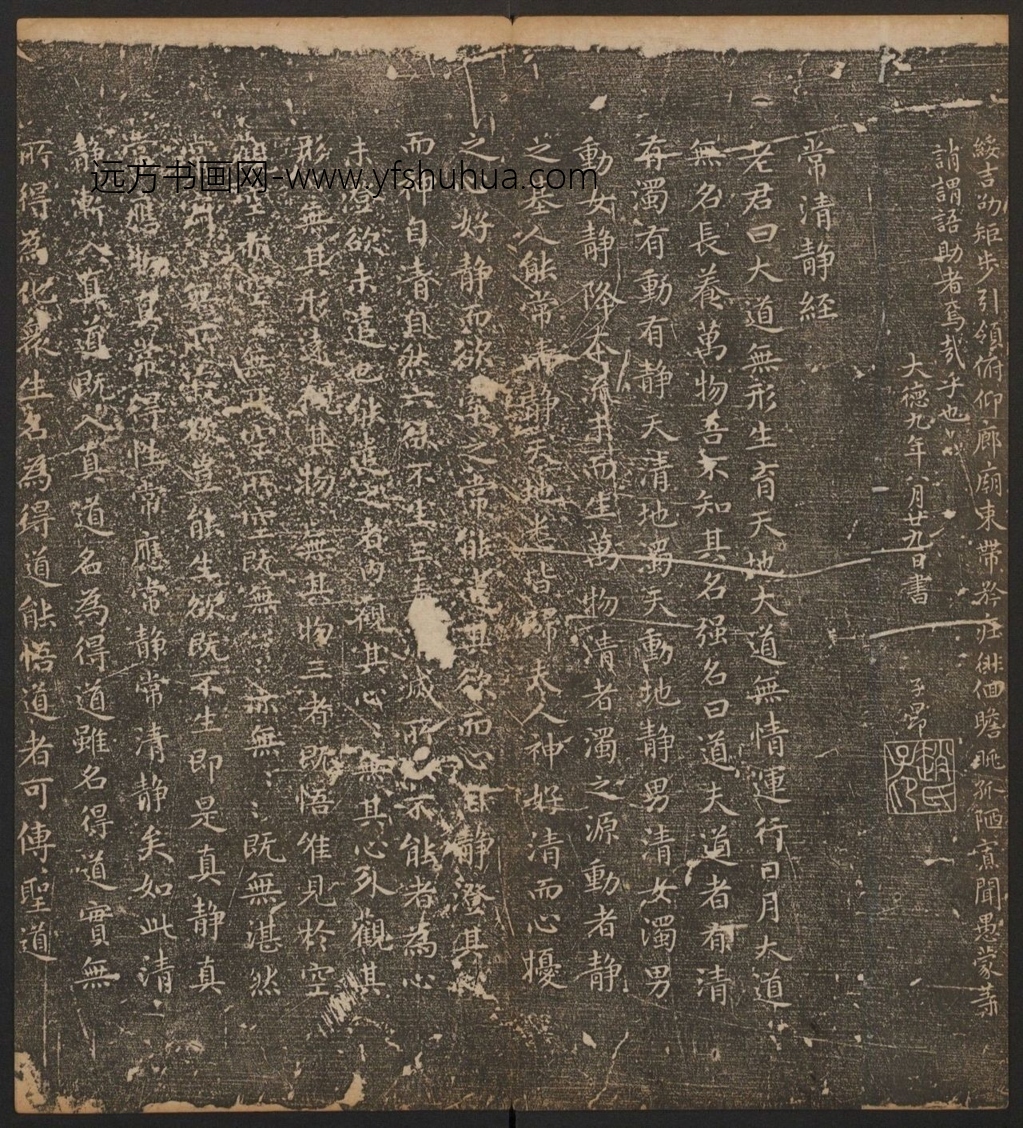 綏吉劭矩步引領俯仰廊廟束帶矜莊徘徊瞻眺孤陋寡聞愚蒙等
誚謂語助者焉哉乎也
大德九年八月廿九日書
子昂
趙氏子昂
常清静經
老君曰大道無形生育天地大道無情運行日月大道
無名長養萬物吾不知其名强名曰道夫道者有清
有濁有動有静天清地濁天動地静男清女濁男
動女静降本流末而生萬物清者濁之源動者静
之基人能常清静天地悉皆歸夫人神好清而心擾
之心好静而欲牽之常能遣其欲而心自静澄其心
而神自清自然六欲不生三毒消滅所以不能者為心
未澄欲未遣也能遣之者內觀其心心無其心外觀其
形形無其形遠觀其物物無其物三者既悟唯見於空
觀空亦空空無所空所空既無無無亦無無無既無湛然
常寂寂無所寂欲豈能生欲既不生即是真静真
常應物真常得性常應常静常清静矣如此清
静漸入真道既入真道名為得道雖名得道實無
所得為化衆生名為得道能悟道者可傳聖道
远方书画网-www.yfshuhua.com